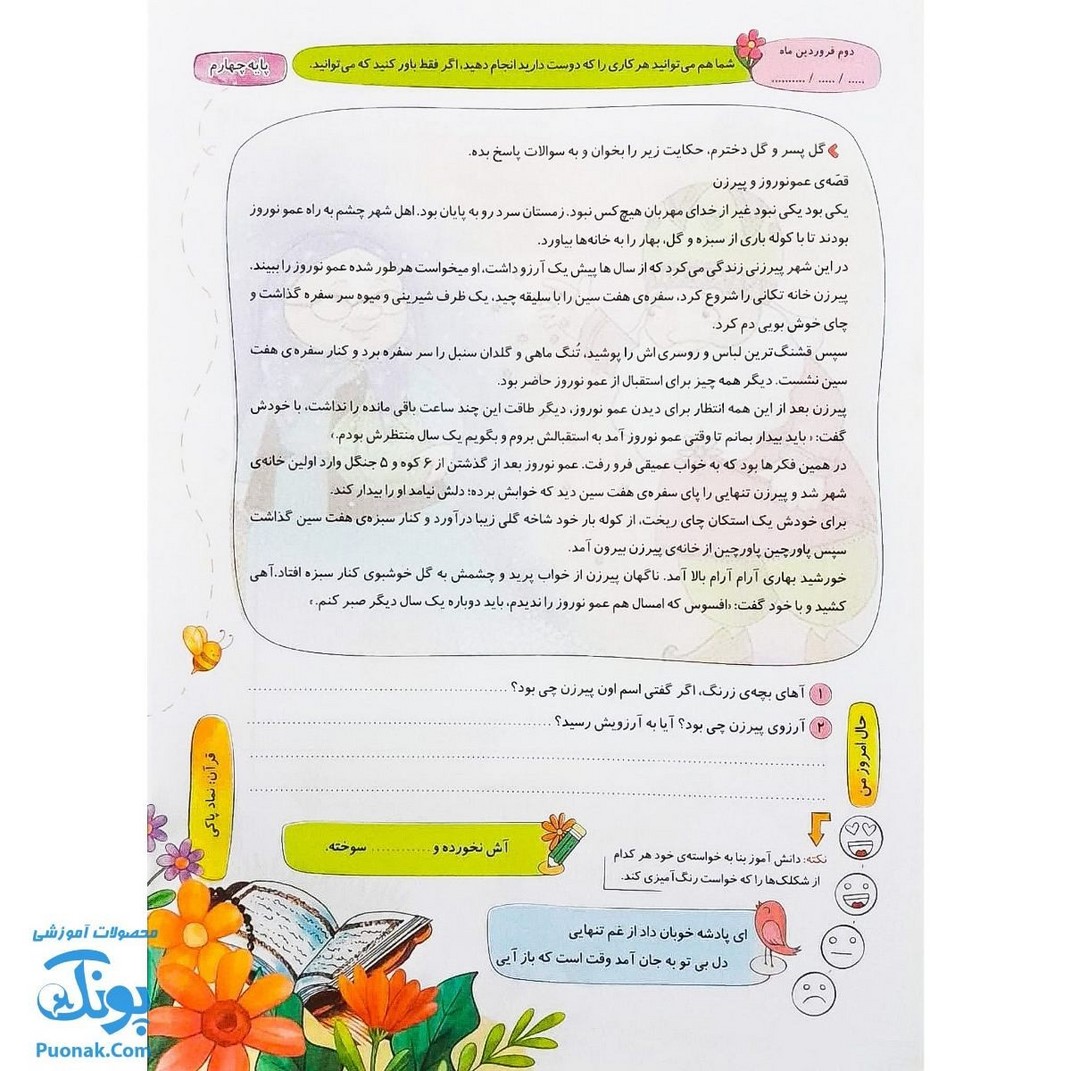 دوم فروردین ماه
..... / ..... / ..........
شما هم می‌توانید هر کاری را که دوست دارید انجام دهید، اگر فقط باور کنید که می‌توانید.
پایه چهارم
گل پسر و گل دخترم، حکایت زیر را بخوان و به سوالات پاسخ بده.
قصّه‌ی عمونوروز و پیرزن
یکی بود یکی نبود غیر از خدای مهربان هیچ کس نبود. زمستان سرد رو به پایان بود. اهل شهر چشم به راه عمو نوروز
بودند تا با کوله باری از سبزه و گل، بهار را به خانه‌ها بیاورد.
در این شهر پیرزنی زندگی می‌کرد که از سال ها پیش یک آرزو داشت، او میخواست هرطور شده عمو نوروز را ببیند.
پیرزن خانه تکانی را شروع کرد، سفره‌ی هفت سین را با سلیقه چید، یک ظرف شیرینی و میوه سر سفره گذاشت و
چای خوش بویی دم کرد.
سپس قشنگ‌ترین لباس و روسری اش را پوشید، تُنگ ماهی و گلدان سنبل را سر سفره برد و کنار سفره‌ی هفت
سین نشست. دیگر همه چیز برای استقبال از عمو نوروز حاضر بود.
پیرزن بعد از این همه انتظار برای دیدن عمو نوروز، دیگر طاقت این چند ساعت باقی مانده را نداشت، با خودش
گفت: « باید بیدار بمانم تا وقتی عمو نوروز آمد به استقبالش بروم و بگویم یک سال منتظرش بودم.»
در همین فکرها بود که به خواب عمیقی فرو رفت. عمو نوروز بعد از گذشتن از ۶ کوه و ۵ جنگل وارد اولین خانه‌ی
شهر شد و پیرزن تنهایی را پای سفره‌ی هفت سین دید که خوابش برده؛ دلش نیامد او را بیدار کند.
برای خودش یک استکان چای ریخت، از کوله بار خود شاخه گلی زیبا درآورد و کنار سبزه‌ی هفت سین گذاشت
سپس پاورچین پاورچین از خانه‌ی پیرزن بیرون آمد.
خورشید بهاری آرام آرام بالا آمد. ناگهان پیرزن از خواب پرید و چشمش به گل خوشبوی کنار سبزه افتاد.آهی
کشید و با خود گفت: «افسوس که امسال هم عمو نوروز را ندیدم، باید دوباره یک سال دیگر صبر کنم.»
۱ آهای بچه‌ی زرنگ، اگر گفتی اسم اون پیرزن چی بود؟
۲ آرزوی پیرزن چی بود؟ آیا به آرزویش رسید؟
حال امروز من
قرآن: نماد پاکی
نکته: دانش آموز بنا به خواسته‌ی خود هر کدام
از شکلک‌ها را که خواست رنگ‌آمیزی کند.
آش نخورده و ............ سوخته.
ای پادشه خوبان داد از غم تنهایی
دل بی تو به جان آمد وقت است که باز آیی
محصولات آموزشی
پونک
Puonak.Com